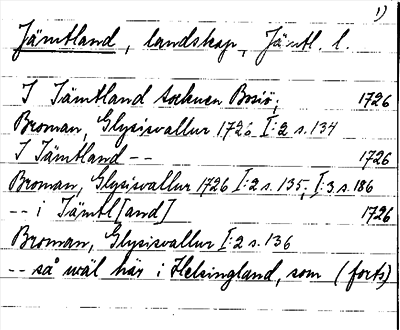 1)
Jämtland, landskap, Jämtl. l.
I Jämtland socknen Bosiö; 1726
Broman, Glysisvallur 1726 I:2 s. 134
I Jämtland -- 1726
Broman, Glysisvallur 1726 I:2 s. 135; I:3 s. 186
-- i Jämtl[and] 1726
Broman, Glysisvallur I:2 s. 136
-- så wäl här i Helsingland, som (forts)